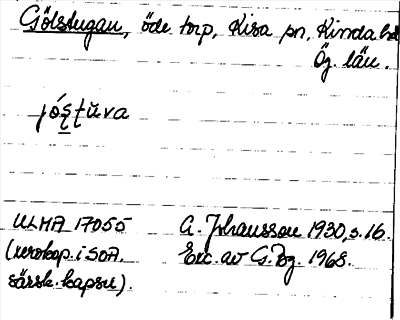 Gölstugan, öde torp, Kisa sn, Kinda hd
Ög. län.
jó̱ʂʈŭva
ULMA 17055
(xerokop. i SOA,
särsk. kapsel).
A. Johansson 1930, s. 16.
Exc. av G. Bg. 1968.